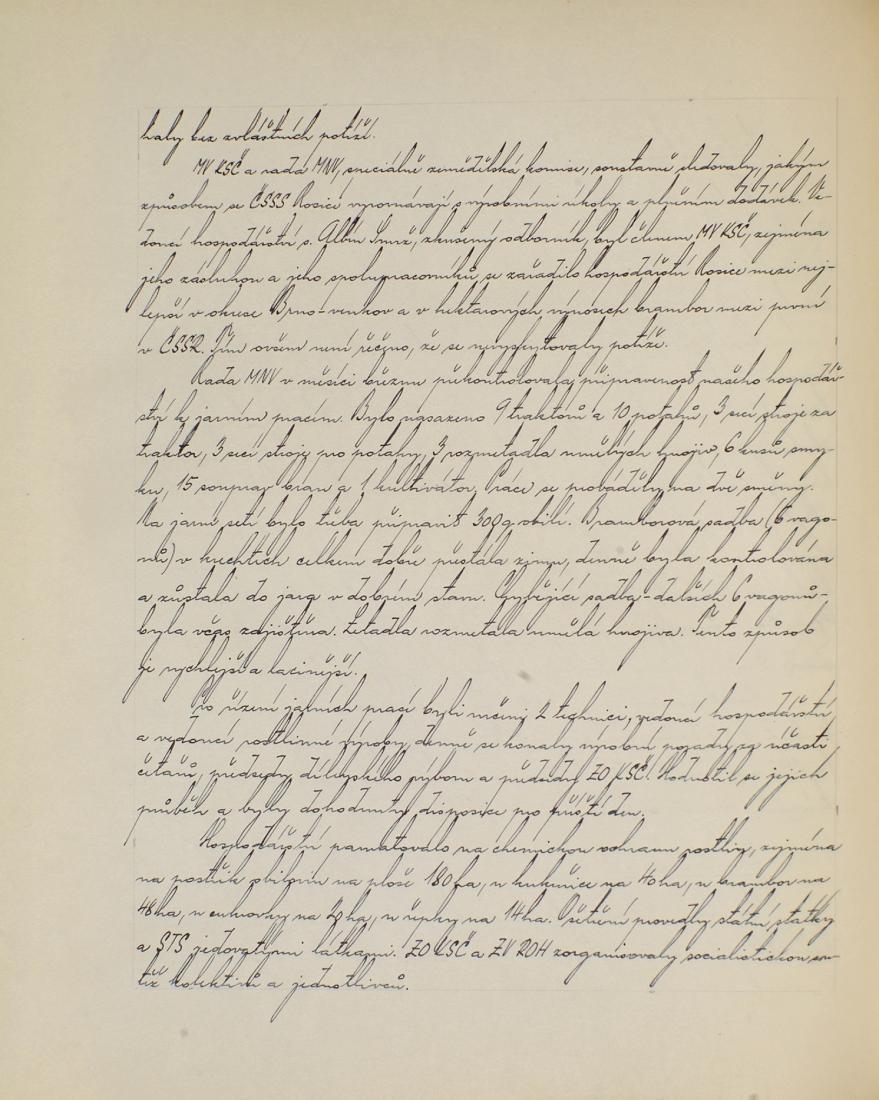 haly bez zvláštních potíží.
MV KSČ a rada MNV, speciálně zemědělská komise, soustavně sledovaly, jakým
způsobem se ČSSS Rosice vyrovnávají s výrobními úkoly a plněním dodávek. Ve-
doucí hospodářství s. Albín Smrž, zkušený odborník, byl členem MV KSČ, zejména
jeho zásluhou a jeho spolupracovníků se zařadilo hospodářství Rosice mezi nej-
lepší v okrese Brno-venkov a v hektarových výnosech brambor mezi první
v ČSSR. Tím ovšem není řečeno, že se nevyskytovaly potíže.
Rada MNV v měsíci březnu překontrolovala připravenost našeho hospodář-
ství k jarním pracím. Bylo nasazeno 9 traktorů a 10 potahů, 3 secí stroje za
traktor, 3 secí stroje pro potahy, 3 rozmetadla umělých hnojiv, 6 kusů smy-
ku, 15 souprav bran a 1 kultivátor. Práce se prováděly na dvě směny.
Na jarní setí bylo třeba připravit 300 q obilí. Bramborová sadba (6 vago-
nů) v krechtech celkem dobře přestála zimu, denně byla kontrolována
a zůstala do jara v dobrém stavu. Chybějící sadba - dalších 6 vagonů -
byla včas zajištěna. Letadla rozmetala umělá hnojiva. Tento způsob
je rychlejší a lacinější.
K řízení jarních prací byli určeni 2 technici, vedoucí hospodářství
a vedoucí rostlinné výroby, denně se konaly výrobní porady za účasti
četařů, předsedy dílenského výboru a předsedy ZO KSČ. Hodnotil se jejich
průběh a byly dohodnuty disposice pro příští den.
Hospodářství pamatovalo na chemickou ochranu rostlin, zejména
na postřik obilovin na ploše 180 ha, u kukuřice na 40 ha, u brambor na
48 ha, u cukrovky na ha, u řepky na 14 ha. Ošetření provedly státní statky
a STS jedovatými látkami. ZO KSČ a ZV ROH zorganisovaly socialistickou sou-
těž kolektivů a jednotlivců.